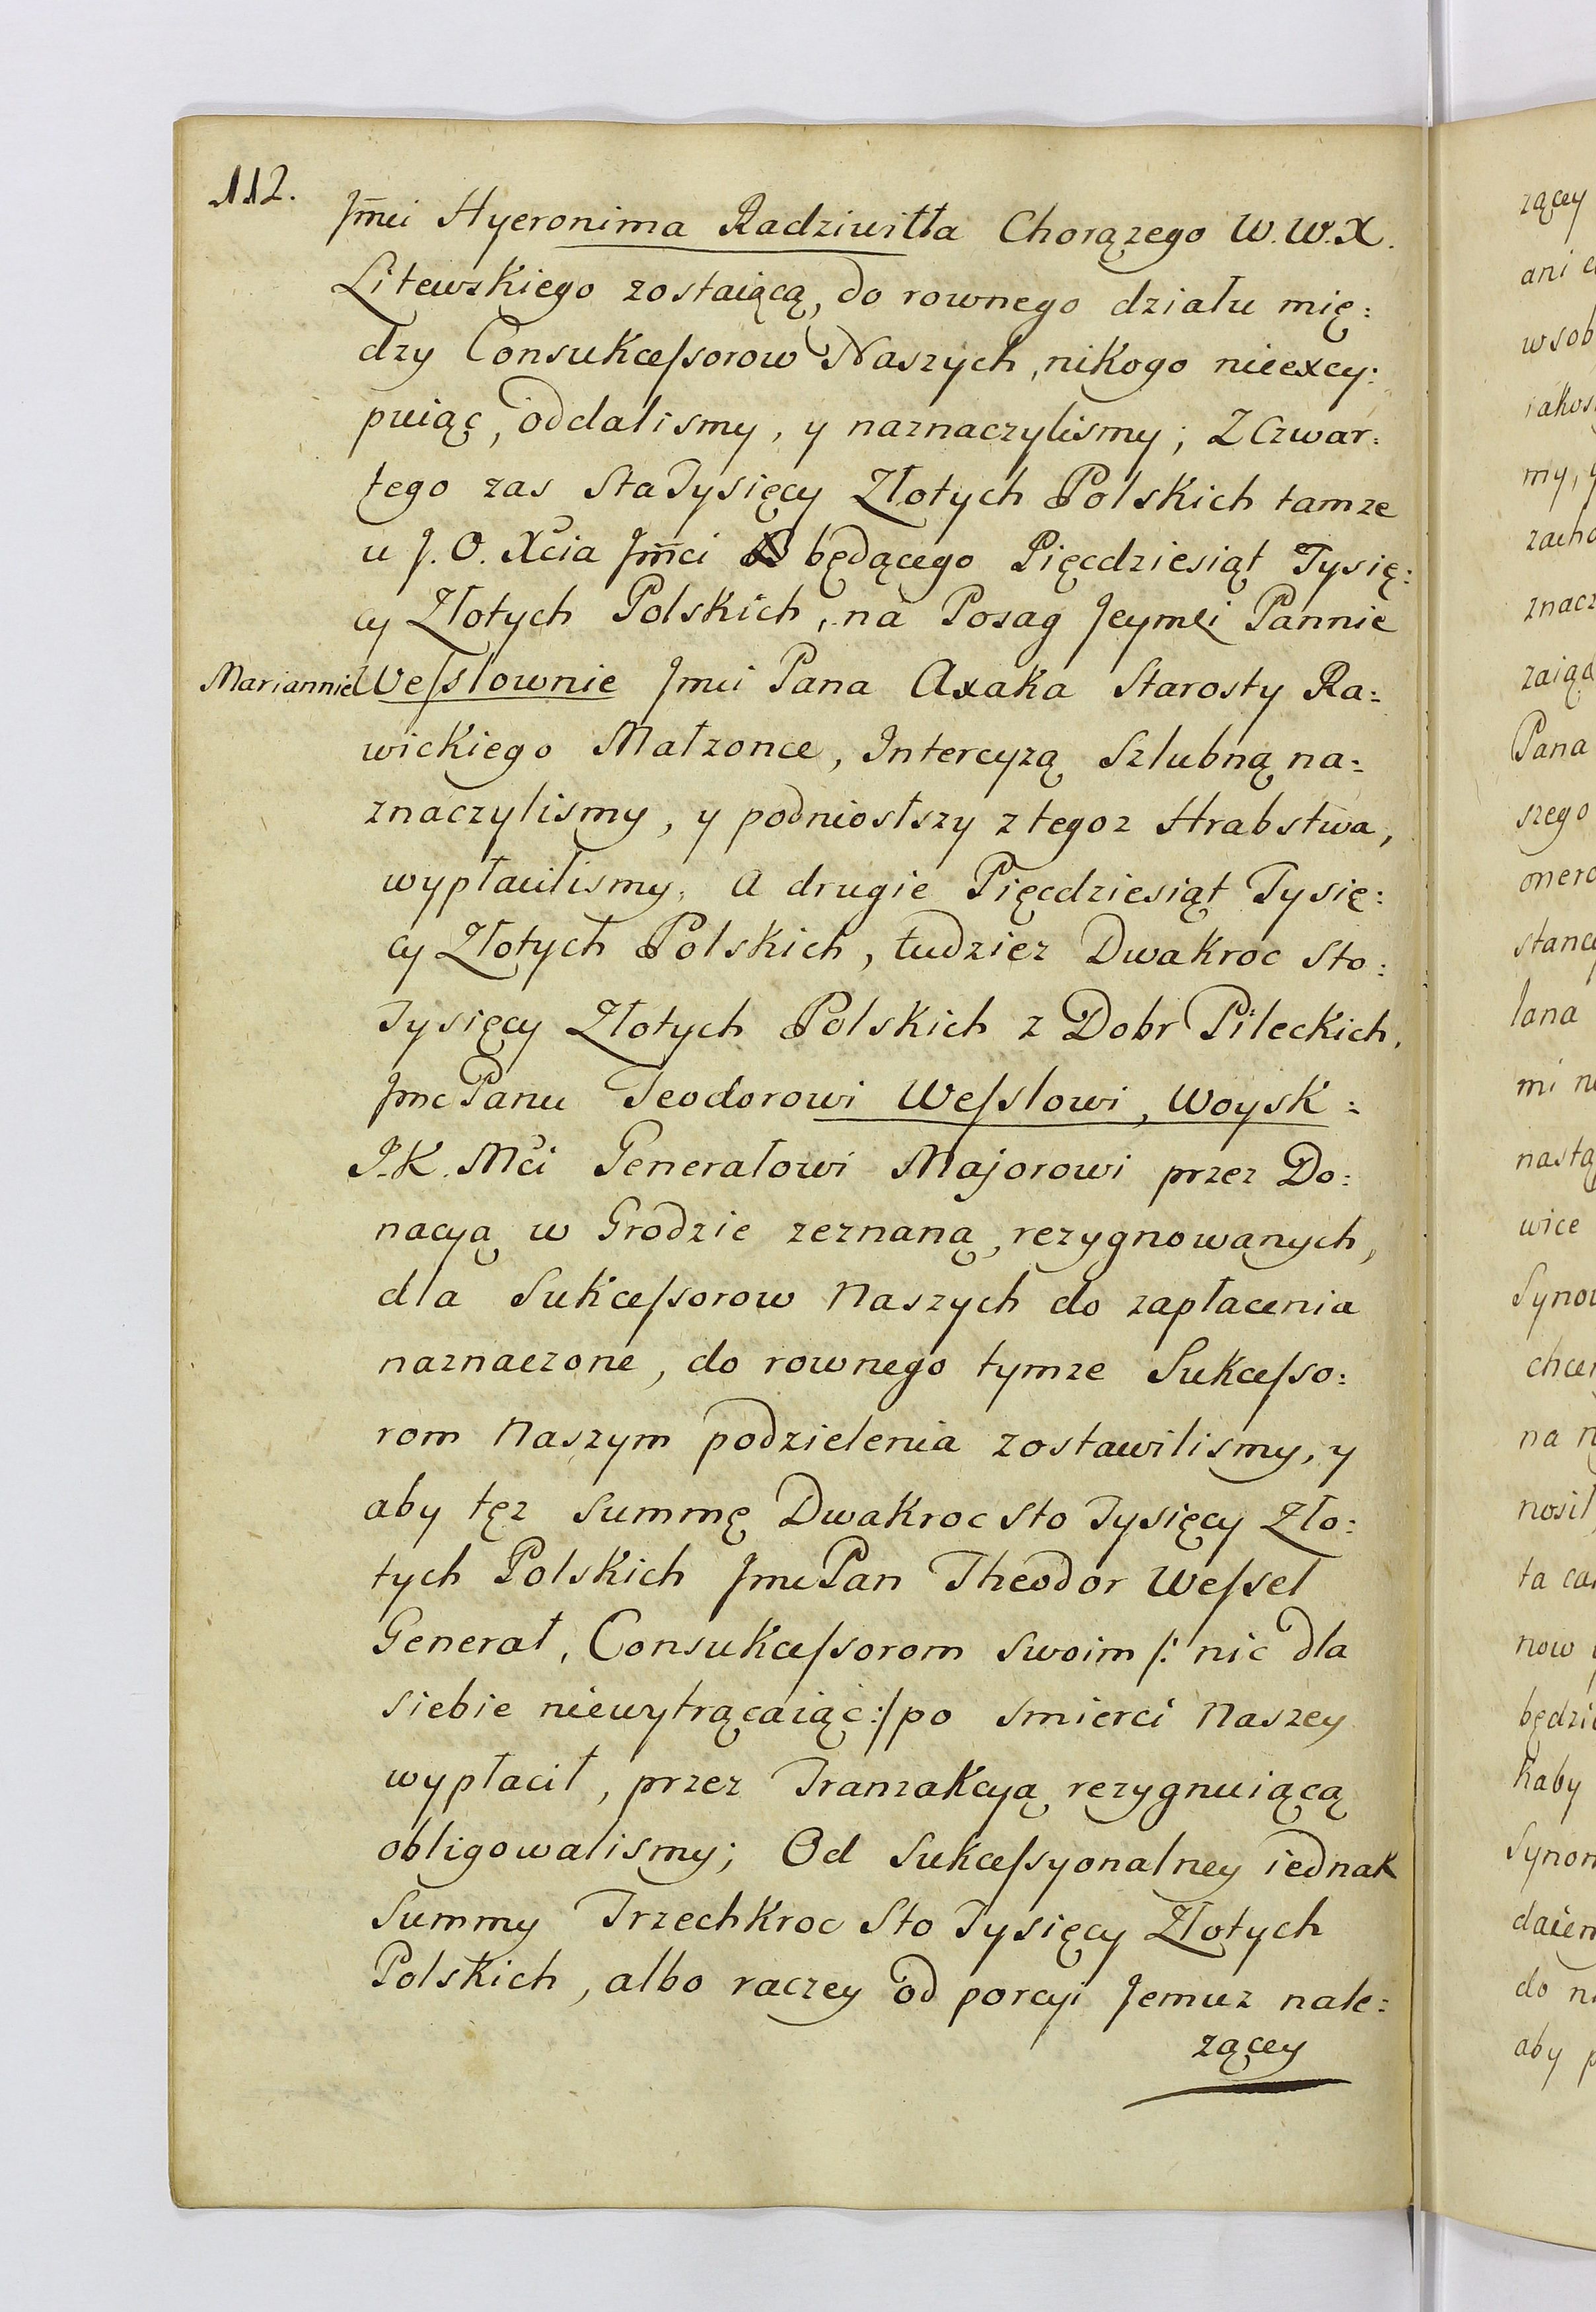 112.
Jm̄ci Hyeronima Radziwiłła Chorązego W. W. X.
Litewskiego zostaiącą, do rownego działu mię:
dzy Consukceſsorow Naszych, nikogo nieexcy:
puiąc, oddalismy, y naznaczylismy; Z Czwar:
tego zas Sta Tysięcy Złotych Polskich tamze
u J. O. Xcia Jm̄ci będącego Pięcdziesiąt Tysię:
cy Złotych Polskich, na Posag Jeymći Pannie
Mariannie Weſslownie Jmci Pana Axaka Starosty Ra:
wickiego Małzonce, Intercyzą Szlubną na:
znaczylismy, y podniosłszy z tegoz Hrabstwa,
wypłacilismy. A drugie Pięcdziesiąt Tysię:
cy Złotych Polskich, tudziez Dwakroc Sto:
Tysięcy Złotych Polskich z Dobr Pileckich,
Jmc Panu Teodorowi Weſslowi, Woysk:
J. K. Mći Generałowi Majorowi przez Do:
nacyą w Grodzie zeznaną, rezygnowanych,
dla Sukceſsorow Naszych do zapłacenia
naznaczone, do rownego tymze Sukceſso:
rom Naszym podzielenia zostawilismy, y
aby tęz Summę Dwakroc Sto Tysięcy Zło:
tych Polskich Jmc Pan Theodor Weſsel
Generał, Consukceſsorom Swoim /: nic dla
siebie niewytrącaiąc :/ po smierci Naszey
wypłacił, przez Tranzakcyą rezygnuiącą
obligowalismy; Od Sukceſsyonalney iednak
Summy Trzechkroc Sto Tysięcy Złotych
Polskich, albo raczey od porcyi Jemuz nale:
zącey
zącey
ani
wsob
my,
Pana
szego
lana
mi
wice
na
ta
now
kaby
do
aby